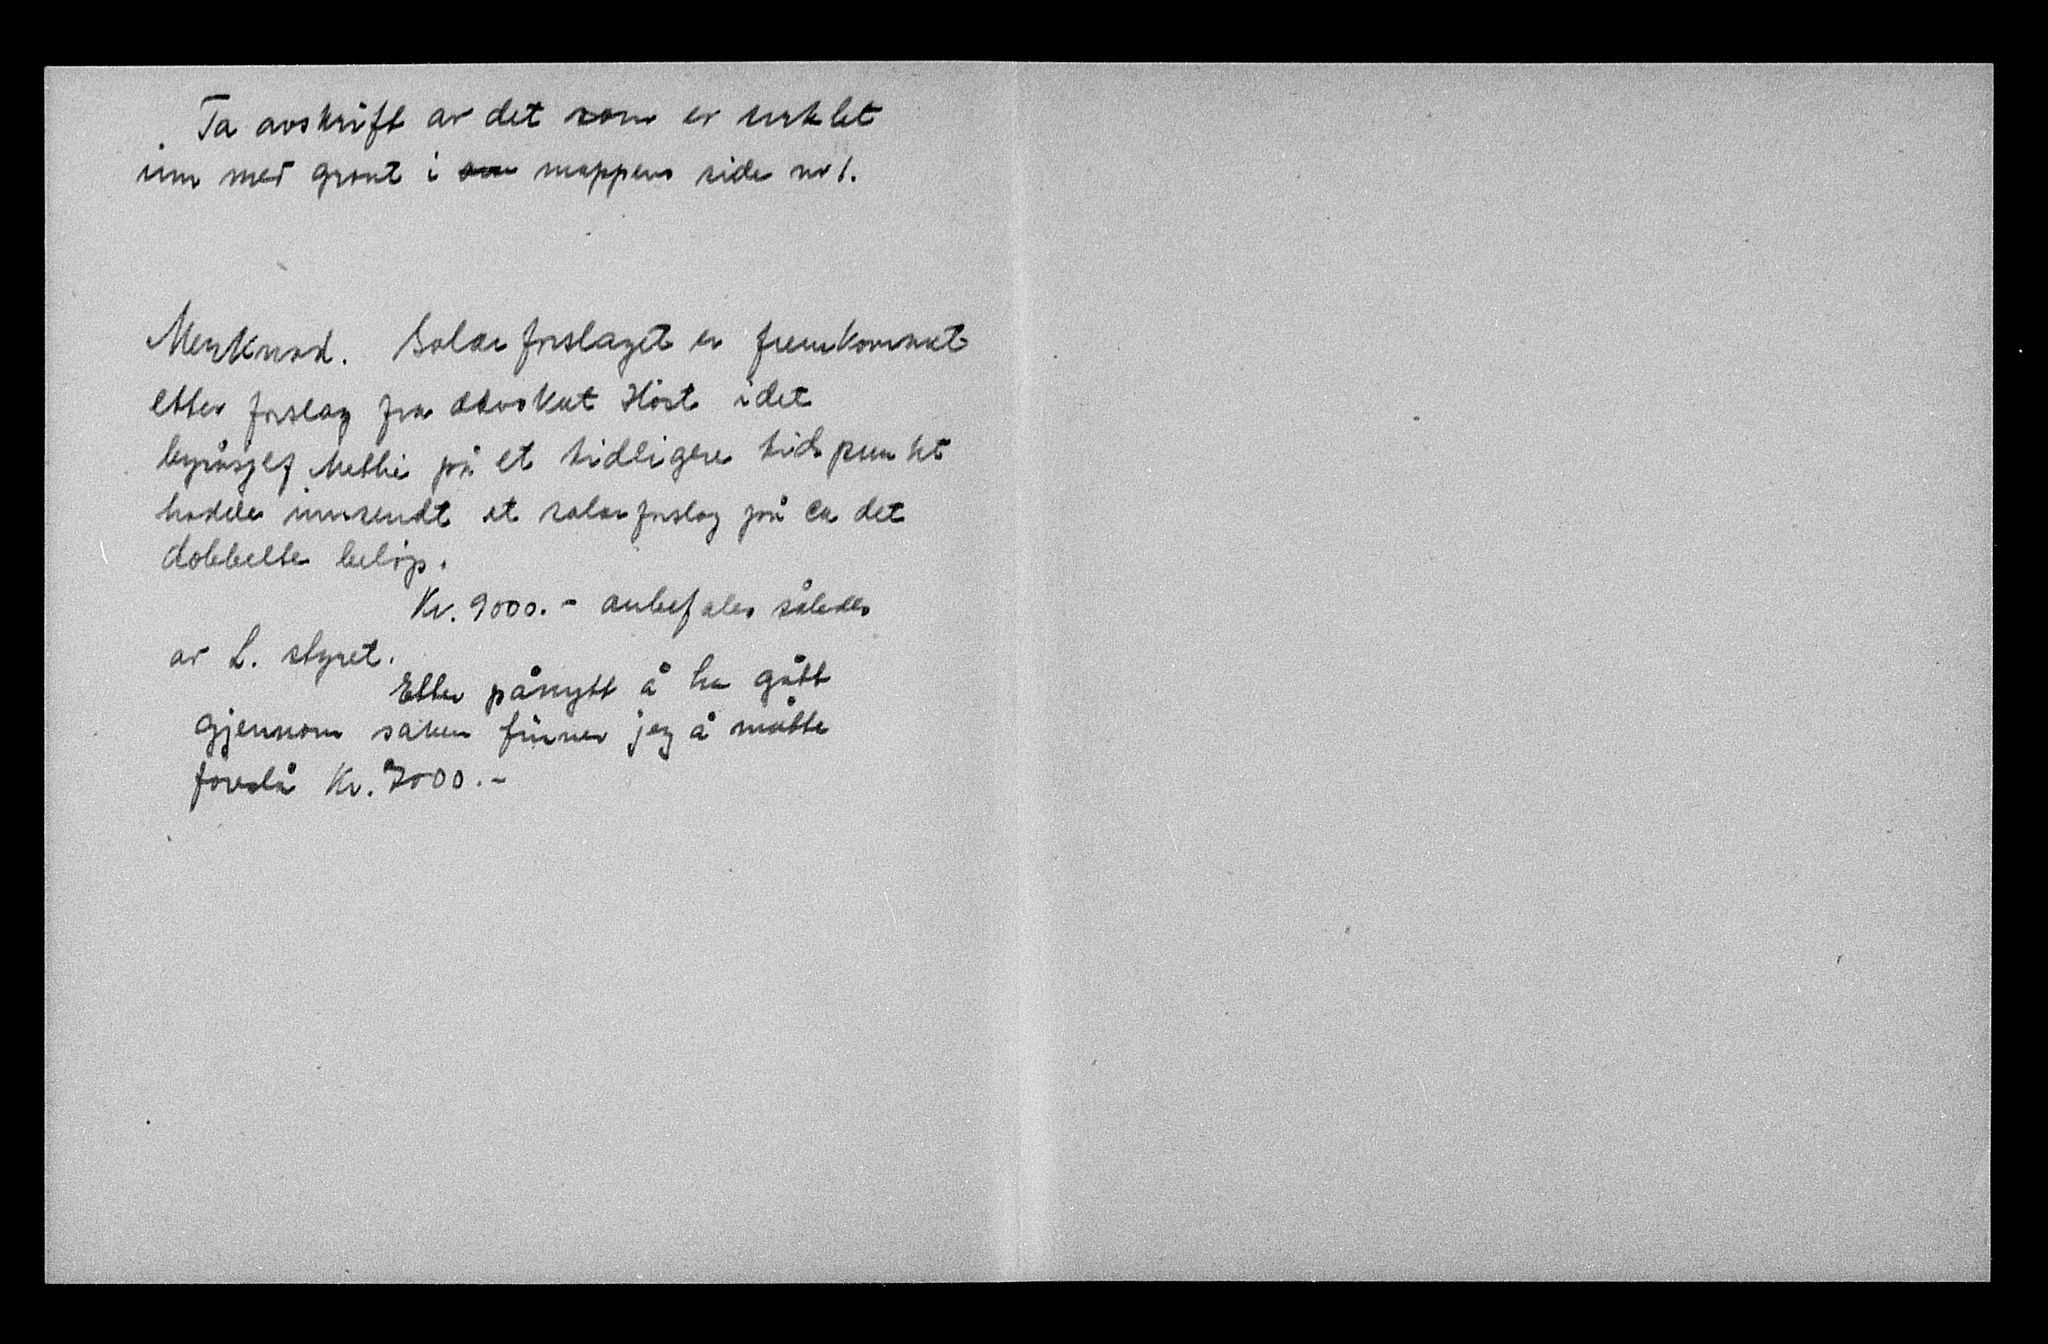 Ta avskrift av det som er sirklet
inn med grønt i mappens side nr 1.
Merknad. Salærforslaget er fremkommet
etter forslag fra advokat Høst idet
byråsjef Methi på et tidligere tidspunkt
hadde innsendt et salærforslag på ca det
dobbelte beløp.
Kr. 9000.- anbefales således
av L. styret.
Etter pånytt å ha gått
gjennom saken finner jeg å måtte
foreslå Kr. 7000.-